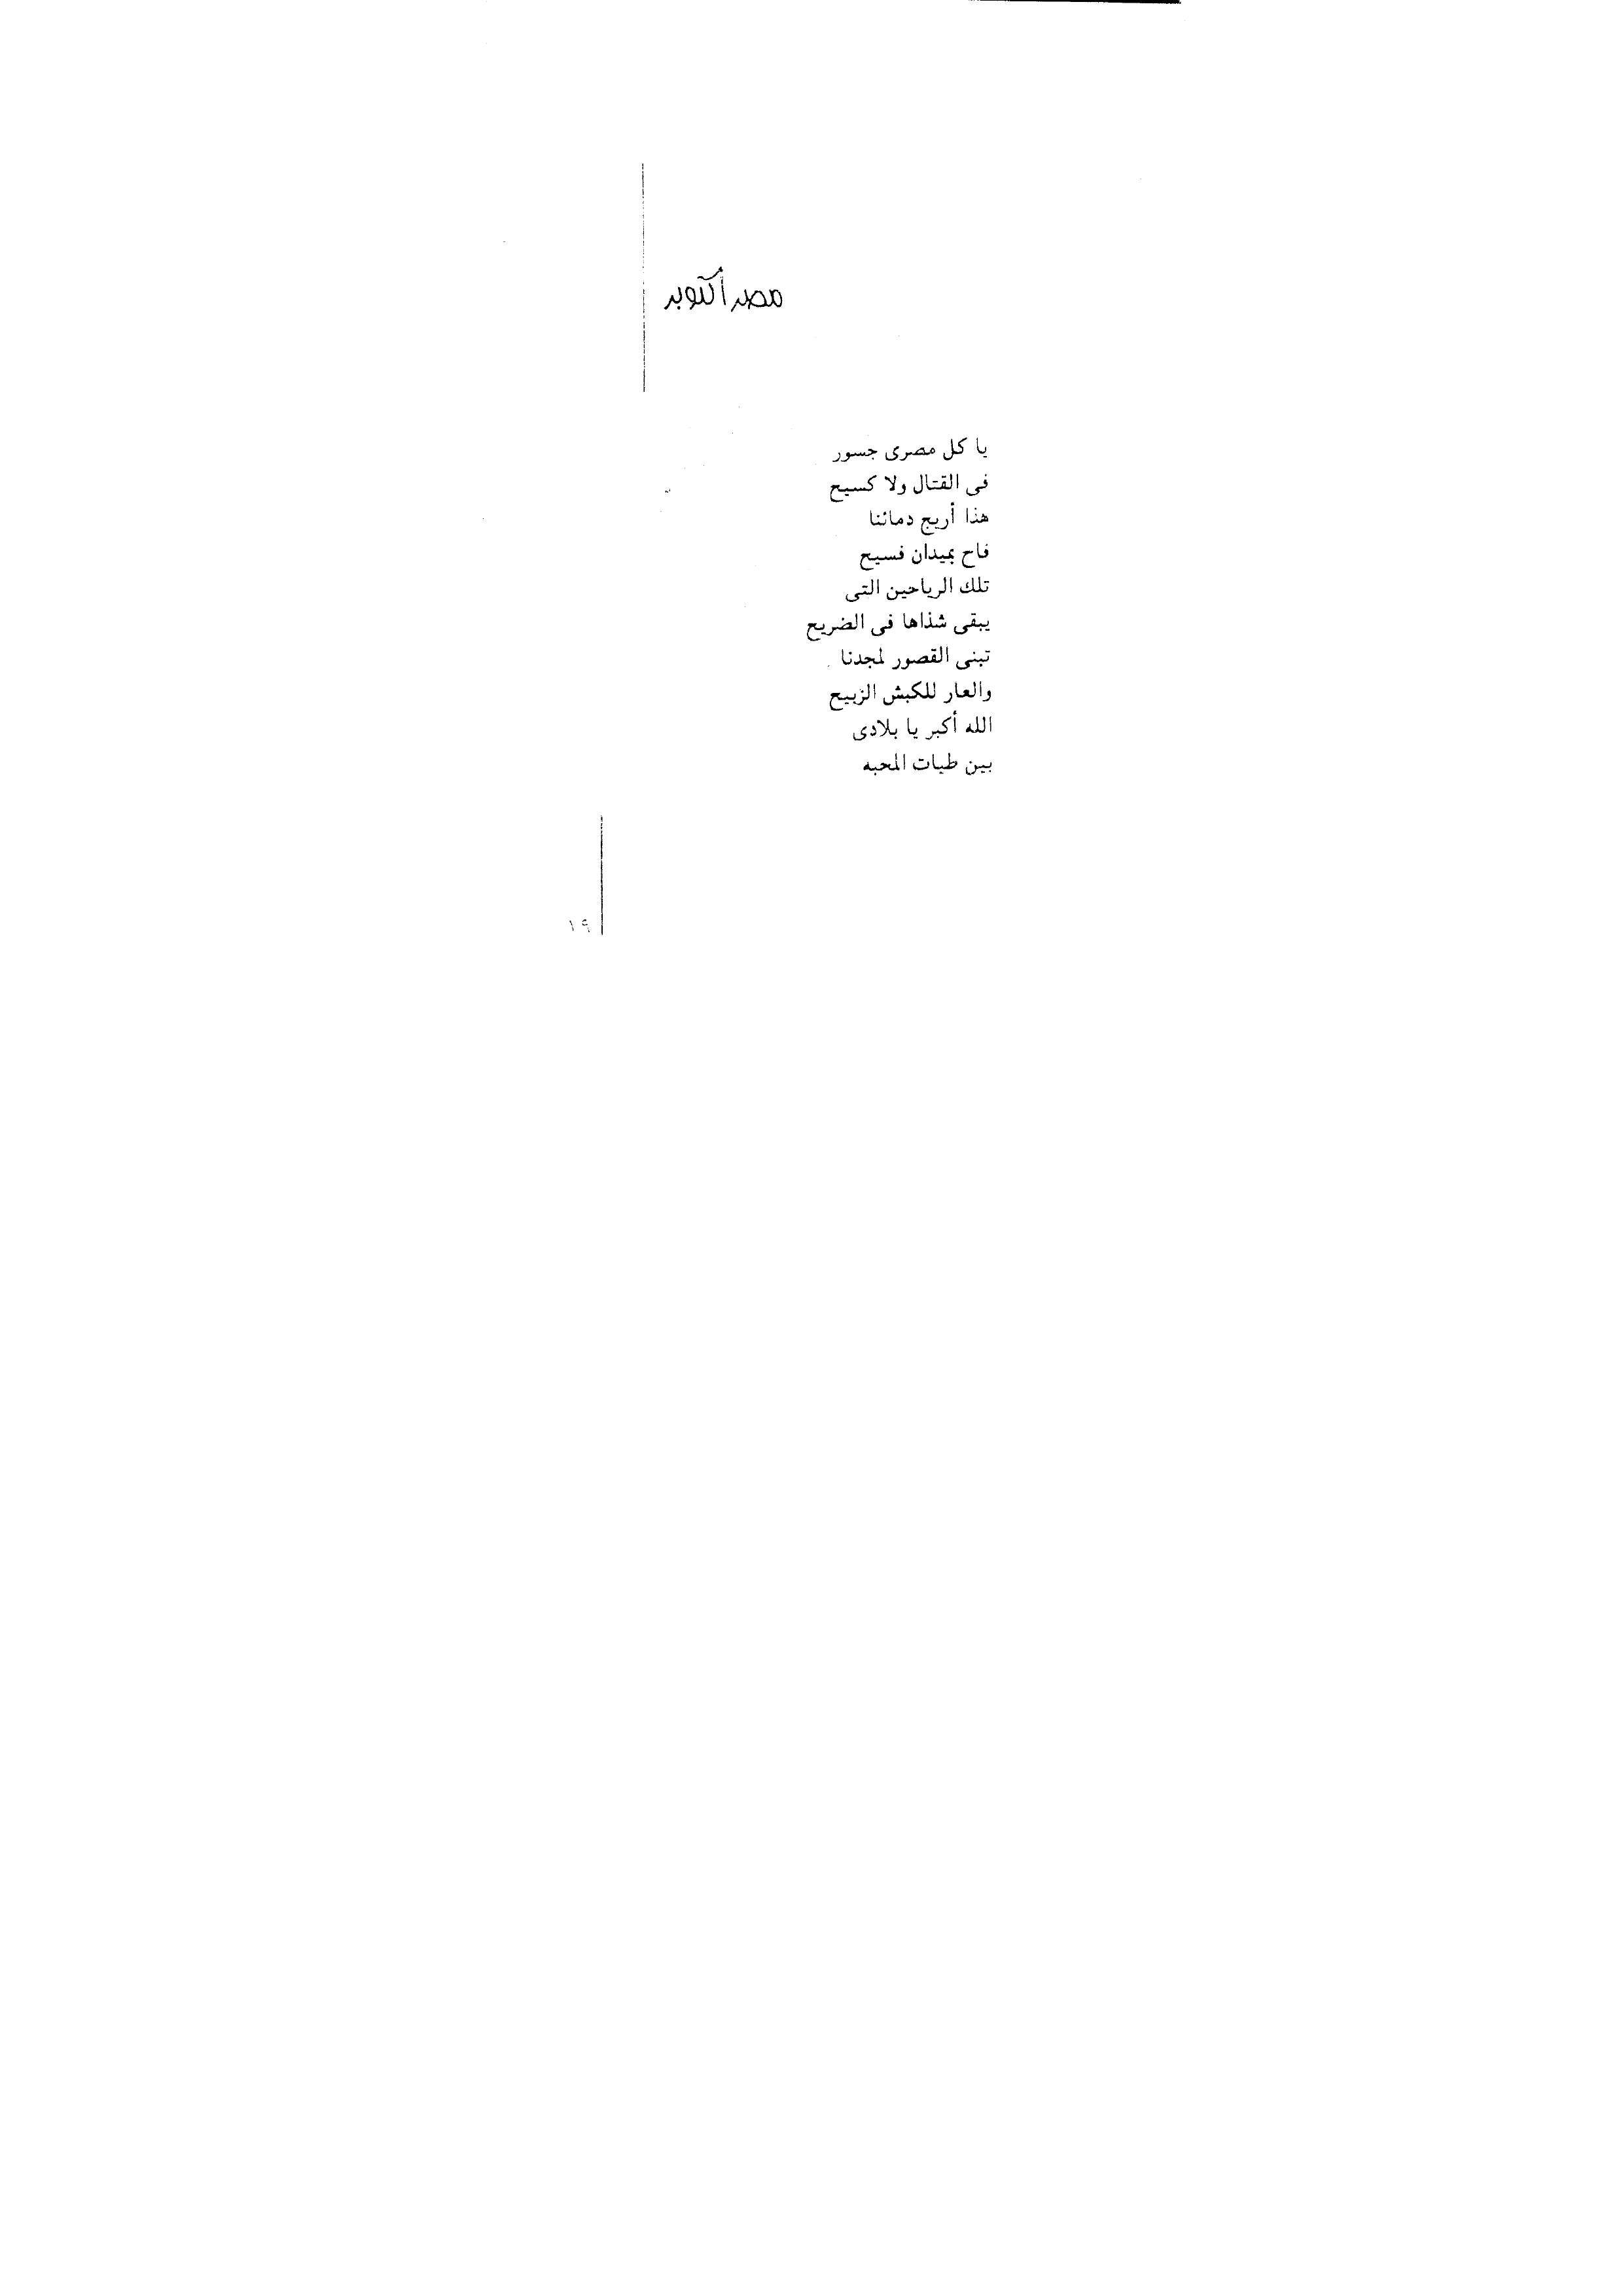 مصر أكتوبر
يا كل مصرى جسور
فى القتال ولا كسيح
هذا أريج دمائنا
فاح بميدان فسيح
تلك الرياحين التى
يبقى شذاها فى الضريح
تبنى القصور لمجدنا
والعار للكبش الزبيح
الله أكبر يا بلادى
بين طيات المحبه
١٩